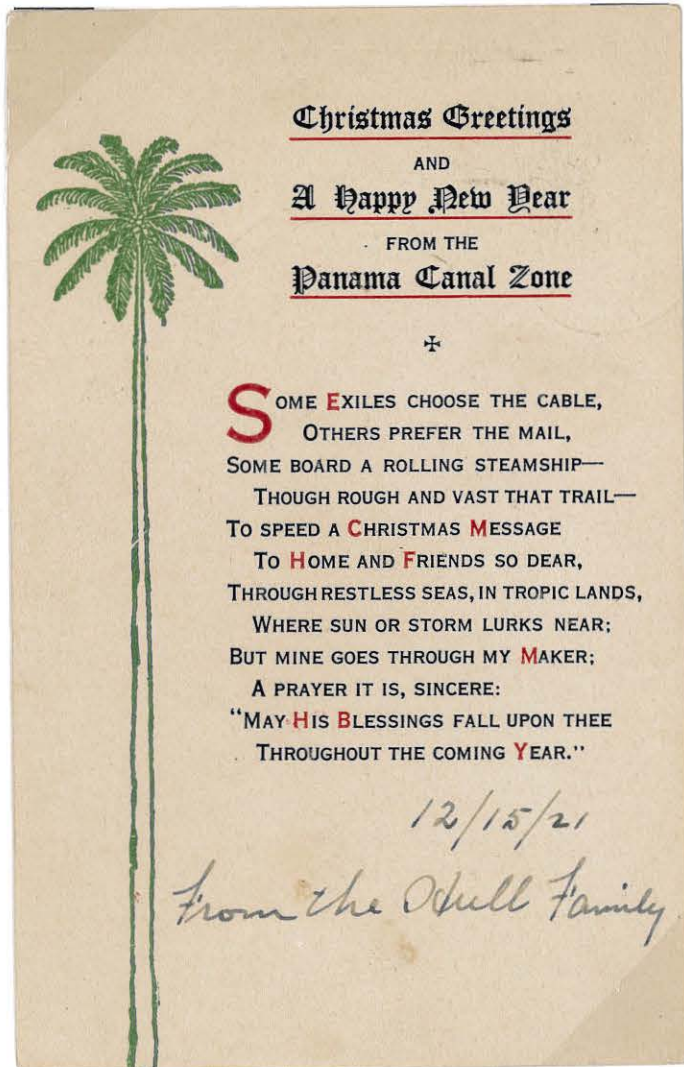 Christmas Greetings
AND
A Happy New Year
FROM THE
Panama Canal Zone
SOME EXILES CHOOSE THE CABLE,
OTHERS PREFER THE MAIL,
SOME BOARD A ROLLING STEAMSHIP—
THOUGH ROUGH AND VAST THAT TRAIL—
TO SPEED A CHRISTMAS MESSAGE
TO HOME AND FRIENDS SO DEAR,
THROUGH RESTLESS SEAS, IN TROPIC LANDS,
WHERE SUN OR STORM LURKS NEAR;
BUT MINE GOES THROUGH MY MAKER;
A PRAYER IT IS, SINCERE:
"MAY HIS BLESSINGS FALL UPON THEE
THROUGHOUT THE COMING YEAR."
12/15/21
From the Hull Family